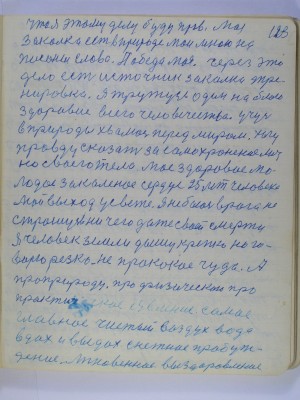 123
этому делу буду прав. Моя
Закалка есть в природе мои мною на
полюби слово. Победа моя. через это
дело ест источник закалка тре
нировка. Я тружусь один на благо
здоровие всего человечества. учус
в природы хвалюс перед миром. Ни
правду сказат за самохронение
но своего тела. Мое здоровое мо
лодое закаленое сердце 25 лет человека
Мой выход у света. Я небоюс врага не
страшусь ничего даже своей смерти
Я человек земли дышу крепко
резко не про какое чуда. А
про природу. про физическое про
практическое самое
главное чистый воздух вода
вдох и выдох снежное пробуж-
дение. Мгновенное выздоровление